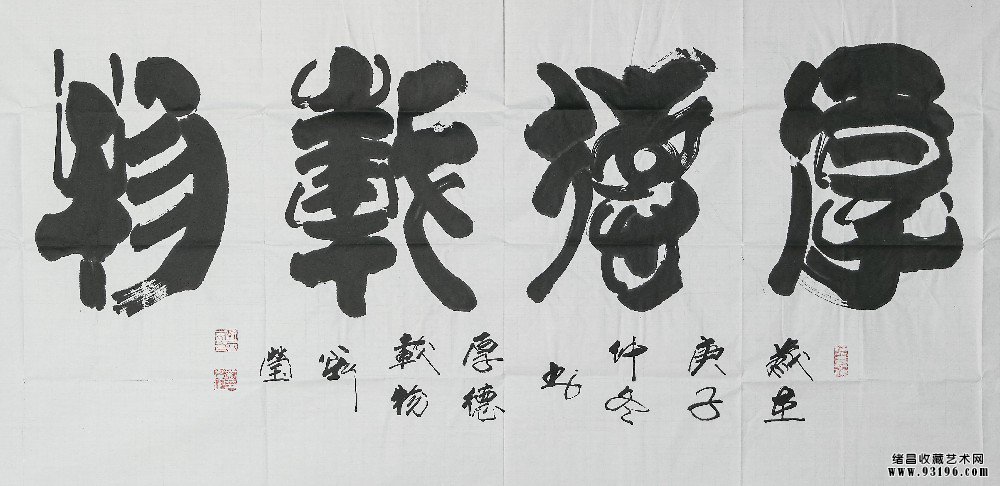 厚德載物
歲在
庚子
仲冬
书
厚德
載物
瑩
绪昌收藏艺术网
www.93196.com